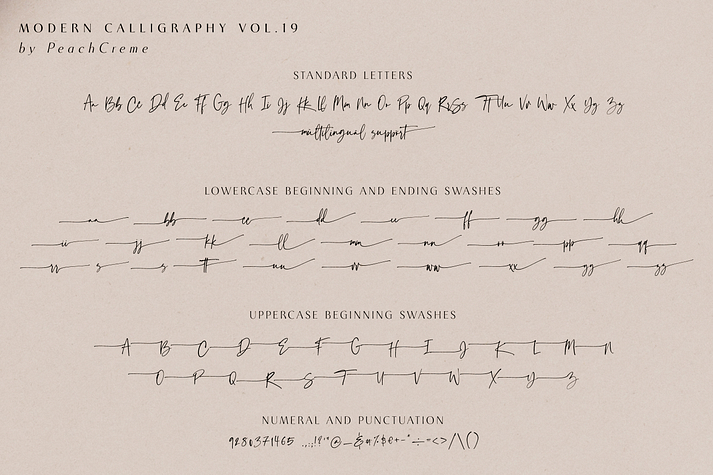 MODERN CALLIGRAPHY VOL.19
by PeachCreme
STANDARD LETTERS
Aa Bb Cc Dd Ee Ff Gg Hh Ii Jj Kk Ll Mm Nn Oo Pp Qq Rr Ss Tt Uu Vv Ww Xx Yy Zz
multilingual support
LOWERCASE BEGINNING AND ENDING SWASHES
aa bb cc dd ee ff gg hh
ii jj kk ll mm nn oo pp qq
rr s s tt uu vv ww xx yy zz
UPPERCASE BEGINNING SWASHES
A B C D E F G H I J K L M N
O P Q R S T U V W X Y Z
NUMERAL AND PUNCTUATION
9280371465